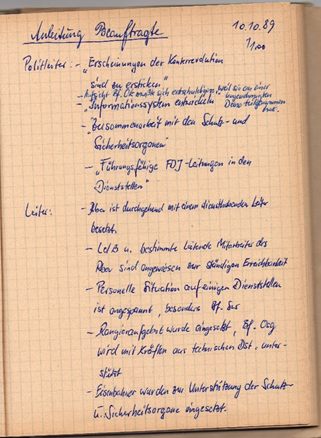 Anleitung Beauftragte 10.10.89
Politleiter: - „Erscheinungen der Konterrevolution
sind zu ersticken"
- Informationssystem entwickeln
- Zusammenarbeit mit den Schutz- und
Sicherheitsorganen"
- „Führungsfähige FDJ-Leitungen in den
Dienststellen"
Leiter: - Rba ist durchgehend mit einem diensthabenden Leiter
besetzt.
- LdB u. bestimmte leitende Mitarbeiter des
Rba sind angewiesen zur ständigen Erreichbarkeit
- Personelle Situation auf einigen Dienststellen
ist angespannt, besonders Bf.
- Rangieraufgebot wurde angesetzt, Bf.
wird mit Kräften aus technischen Dst. unter-
stützt
- Eisenbahner wurden zur Unterstützung der Schutz-
u. Sicherheitsorgane eingesetzt.